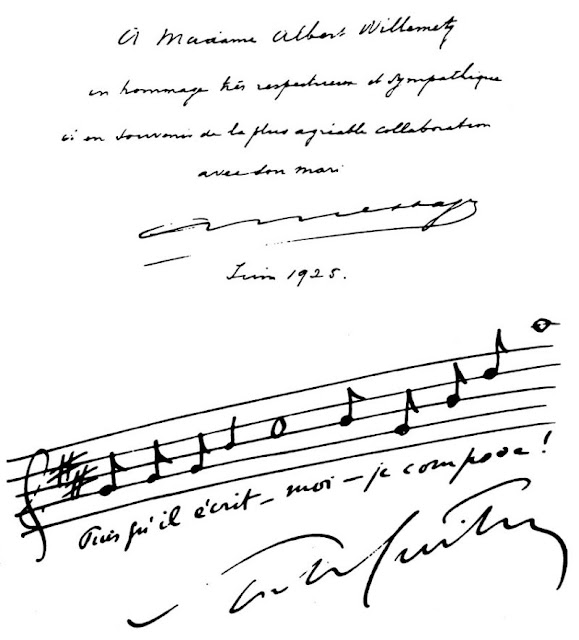 À Madame Albert Willemetz
en hommage très respectueux et sympathique
et en souvenir de la plus agréable collaboration
avec son mari
A Messager
Juin 1925.
Puisqu'il écrit – moi – je compose !
Sacha Guitry